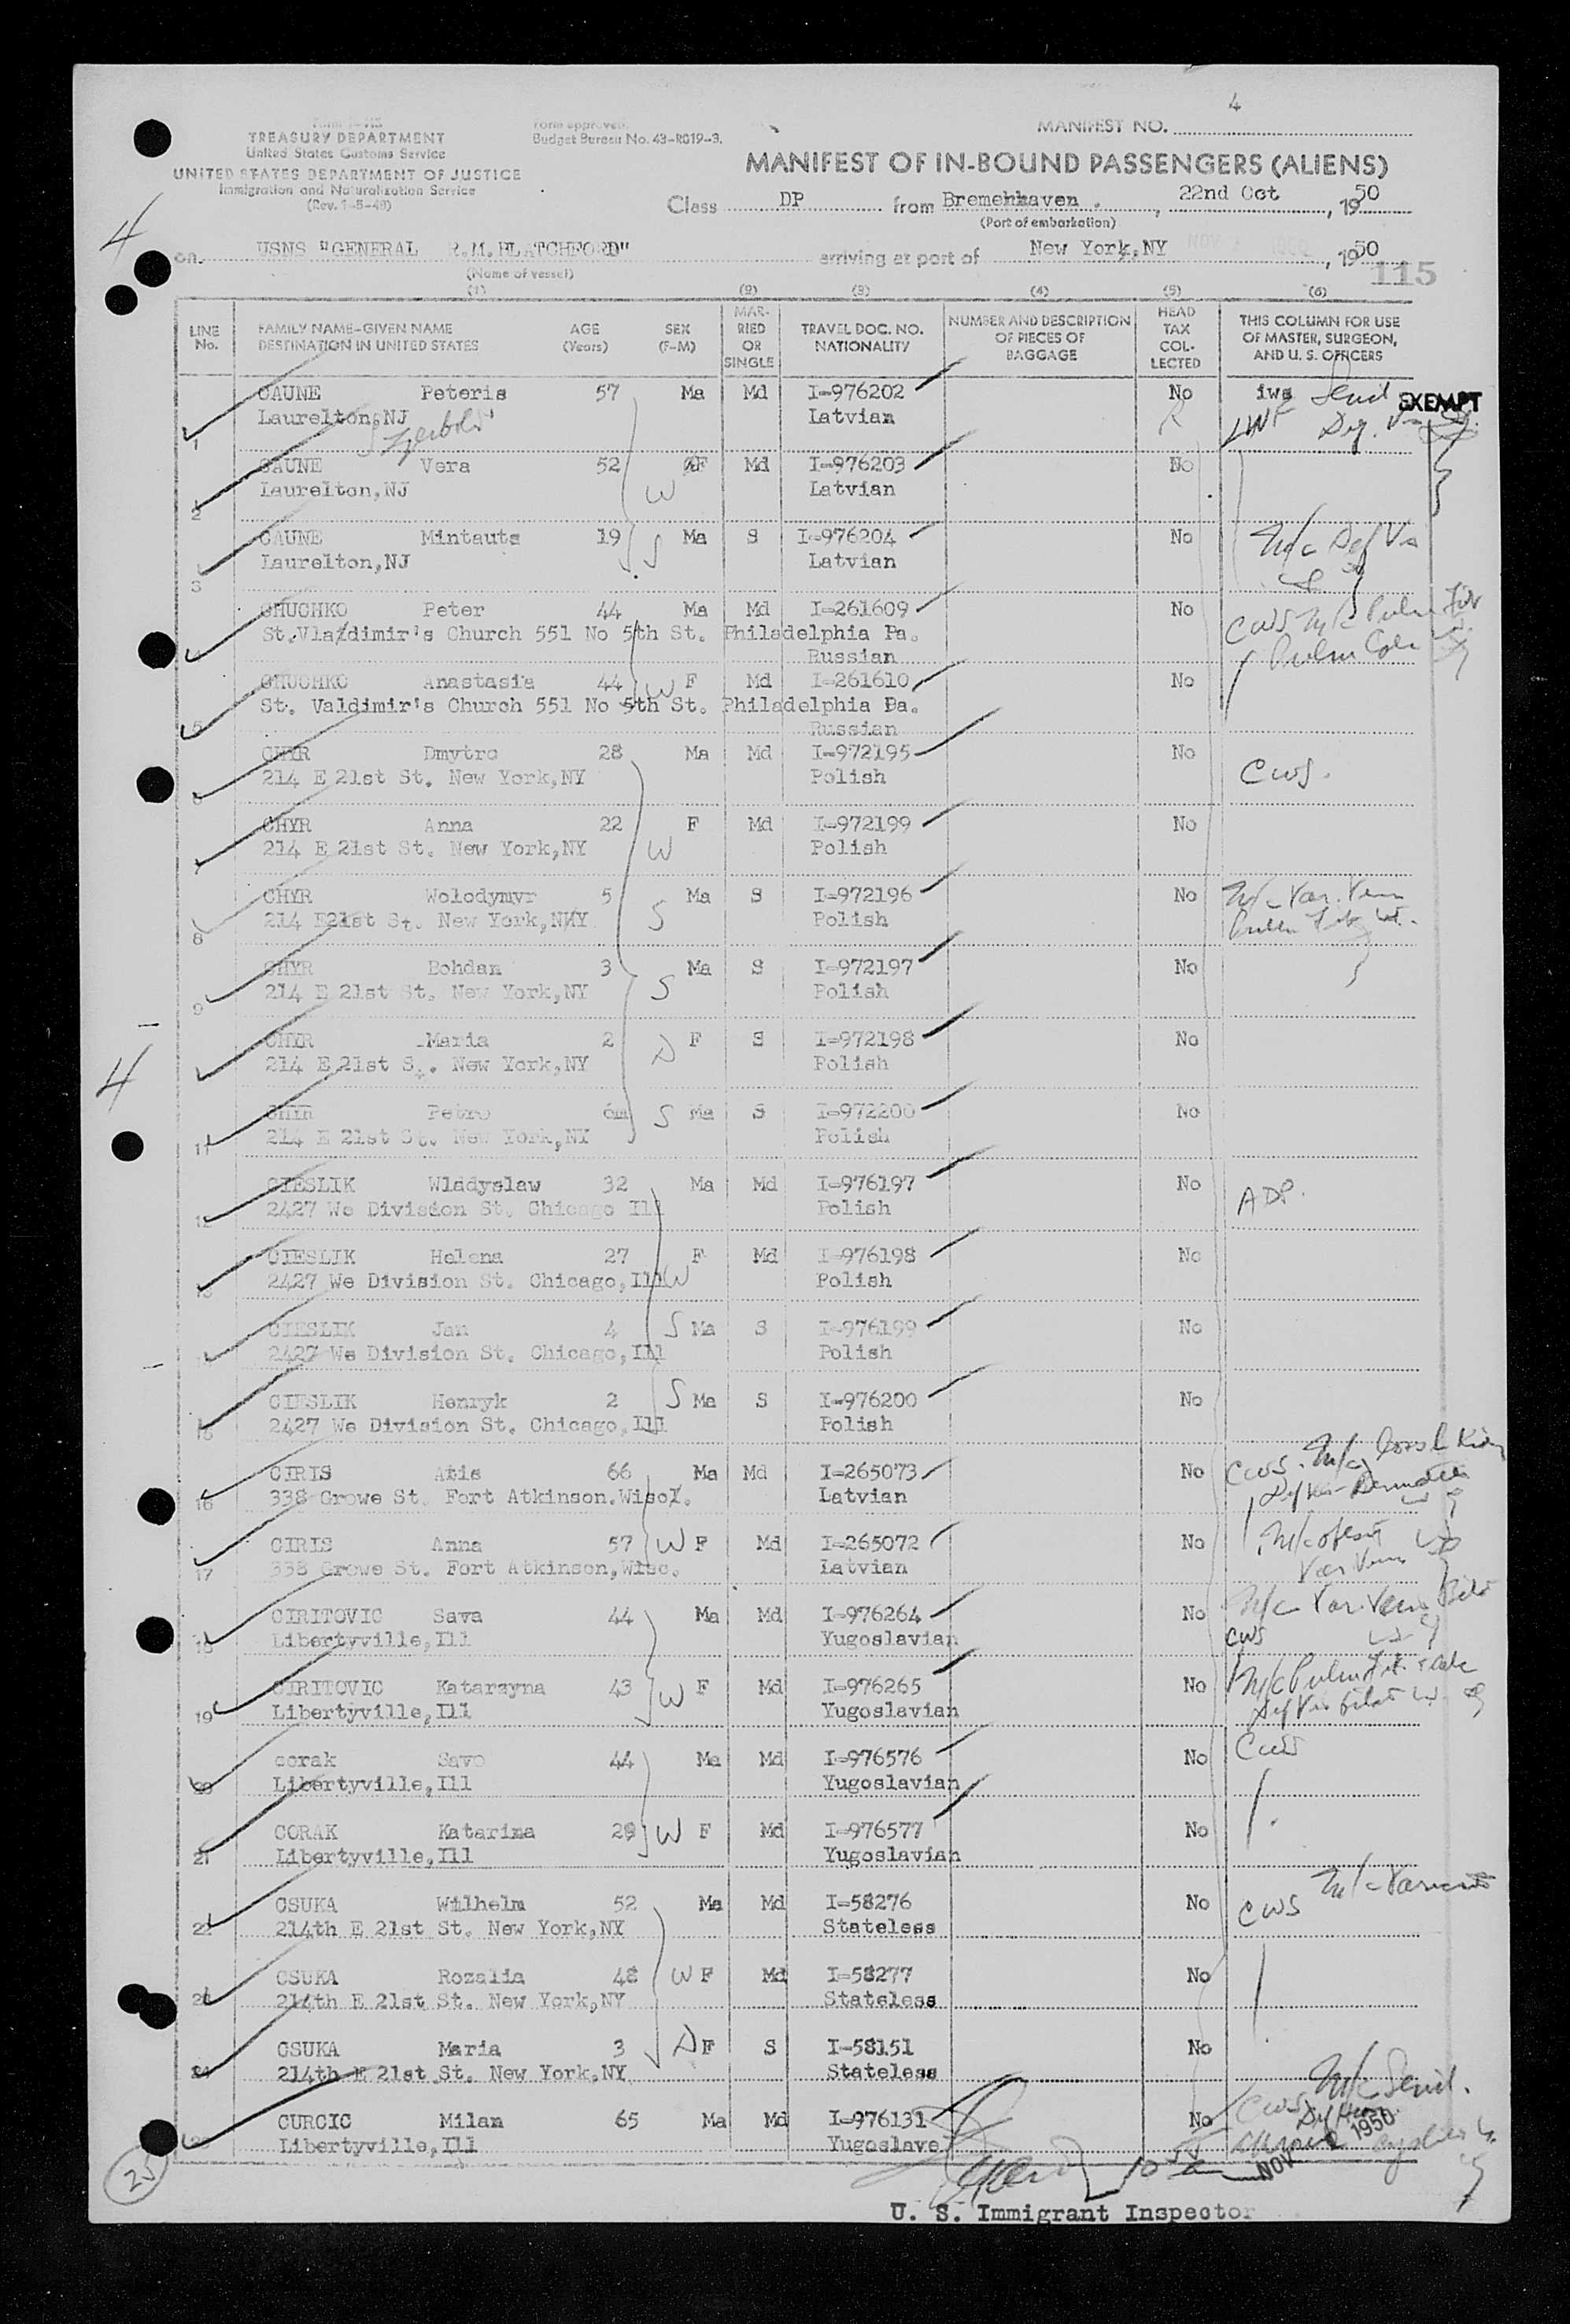 4
TREASURY DEPARTMENT
United States Customs Service
UNITED STATES DEPARTMENT OF JUSTICE
Immigration and Naturalization Service
(Rev. 1-5-49)
Form approved.
Budget Bureau No. 43-R019-3.
MANIFEST NO. 4
MANIFEST OF IN-BOUND PASSENGERS (ALIENS)
Class DP from Bremenhaven, 22nd Oct, 1950
(Port of embarkation)
on USNS "GENERAL R.M. BLATCHFORD" arriving at port of New York, NY, 1950
(Name of vessel)
115
(1) (2) (3) (4) (5) (6)
LINE No. FAMILY NAME-GIVEN NAME DESTINATION IN UNITED STATES AGE (Years) SEX (F-M) MARRIED OR SINGLE TRAVEL DOC. NO. NATIONALITY NUMBER AND DESCRIPTION OF PIECES OF BAGGAGE HEAD TAX COLLECTED THIS COLUMN FOR USE OF MASTER, SURGEON, AND U. S. OFFICERS
1 CAUNE Peteris 57 Ma Md I-976202 No iwa Senil EXEMPT
Laurelton,NJ Latvian LWF
2 CAUNE Vera 52 F Md I-976203 No
Laurelton,NJ W Latvian
3 CAUNE Mintauts 19 S Ma S I-976204 No
Laurelton,NJ Latvian
CHUCHKO Peter 44 Ma Md I-261609 No CWS M/c
St.Vladimir's Church 551 No 5th St. Philadelphia Pa.
Russian
5 CHUCHKO Anastasia 44 W F Md I-261610 No
St. Valdimir's Church 551 No 5th St. Philadelphia Pa.
Russian
6 CHYR Dmytro 28 Ma Md I-972195 No
214 E 21st St. New York,NY Polish CWS.
7 CHYR Anna 22 F Md I-972199 No
214 E 21st St. New York,NY W Polish
8 CHYR Wolodymyr 5 Ma S I-972196 No M/c Var. Vein
214 E21st St. New York,NY S Polish
9 CHYR Bohdan 3 Ma S I-972197 No
214 E 21st St. New York,NY S Polish
CHYR Maria 2 F S I-972198 No
214 E 21st St. New York,NY D Polish
11 CHYR Petro 6m S Ma S I-972200 No
214 E 21st St. New York,NY Polish
12 CIESLIK Wladyslaw 32 Ma Md I-976197 No
2427 We Division St. Chicago Ill Polish ADP.
13 CIESLIK Helena 27 F Md I-976198 No
2427 We Division St. Chicago,Ill W Polish
CIESLIK Jan 4 S Ma S I-976199 No
2427 We Division St. Chicago,Ill Polish
15 CIESLIK Henryk 2 S Ma S I-976200 No
2427 We Division St. Chicago,Ill Polish
16 CIRIS Atis 66 Ma Md I-265073 No CWS. M/c
338 Crowe St. Fort Atkinson.Wisc. Latvian
17 CIRIS Anna 57 W F Md I-265072 No
338 Crowe St. Fort Atkinson,Wisc. Latvian
18 CIRITOVIC Sava 44 Ma Md I-976264 No M/c Var. Vein
Libertyville,Ill Yugoslavian CWS
19 CIRITOVIC Katarzyna 43 W F Md I-976265 No
Libertyville,Ill Yugoslavian
20 corak Savo 44 Ma Md I-976576 No CWS
Libertyville,Ill Yugoslavian
21 CORAK Katarina 29 W F Md I-976577 No
Libertyville,Ill Yugoslavian
22 CSUKA Wilhelm 52 Ma Md I-58276 No CWS
214th E 21st St. New York,NY Stateless
CSUKA Rozalia 48 W F Md I-58277 No
214th E 21st St. New York,NY Stateless
24 CSUKA Maria 3 D F S I-58151 No
214th E 21st St. New York,NY Stateless
CURCIC Milan 65 Ma Md I-976131 No CWS M/c Senil.
Libertyville,Ill Yugoslave
NOV 1950
25
U. S. Immigrant Inspector
4